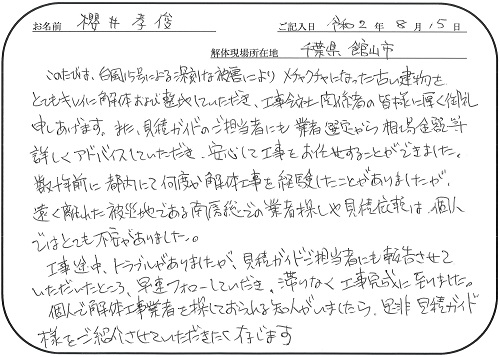 お名前 櫻井 孝俊 ご記入日 令和2年8月15日
解体現場所在地 千葉県 館山市
このたびは、台風15号による深刻な被害により メチャクチャになった古い建物を
とてもキレイに解体および整地していただき、工事会社関係者の皆様に厚く御礼
申しあげます。また、見積ガイドのご担当者にも 業者選定から 相場金額等
詳しくアドバイスしていただき、安心して工事をお任せすることができました。
数十年前に 都内にて何度か解体工事を経験したことがありましたが、
遠く離れた被災地である南房総での業者探しや見積依頼は、個人
ではとても不安がありました。
工事途中、トラブルがありましたが、見積ガイドご担当者にも報告させて
いただいたところ、早速フォローしていただき、滞りなく工事完成に至りました。
個人で解体工事業者を探しておられる知人がいましたら、是非 見積ガイド
様をご紹介させていただきたく存じます